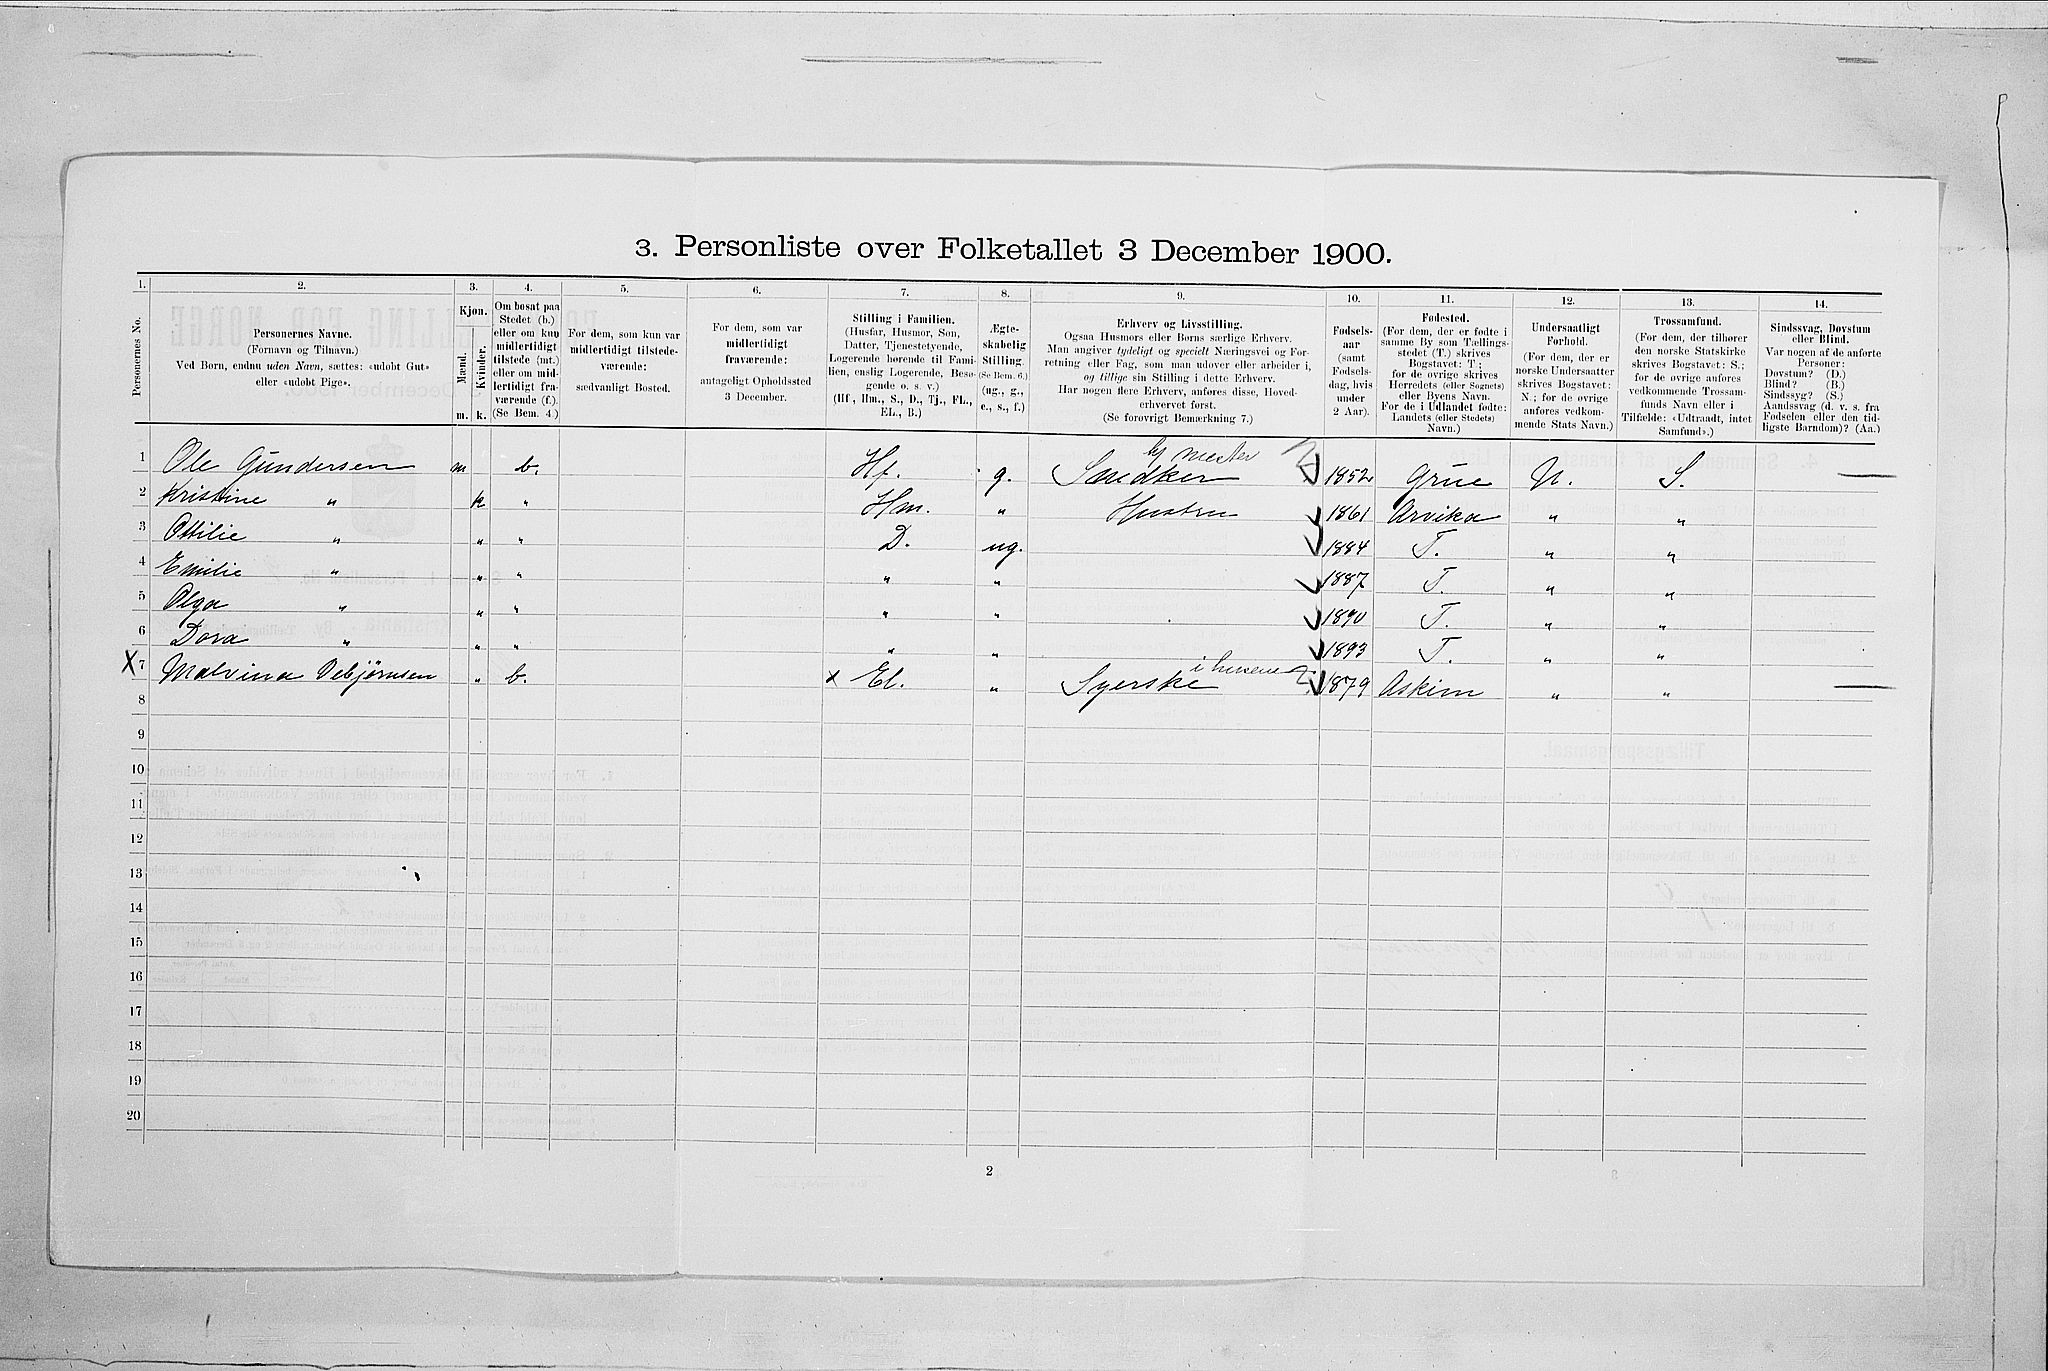 3. Personliste over Folketallet 3 December 1900.
1. 2. 3. 4. 5. 6. 7. 8. 9. 10. 11. 12. 13. 14.
Personernes No.
Personernes Navne.
(Fornavn og Tilnavn.)
Ved Børn, endnu uden Navn, sættes: «udøbt Gut»
eller «udøbt Pige».
Kjøn.
Mænd.
Kvinder.
m. k.
Om bosat paa
Stedet (b.)
eller om kun
midlertidigt
tilstede (mt.)
eller om mid-
lertidigt fra-
værende (f.).
(Se Bem. 4.)
For dem, som kun var
midlertidigt tilstede-
værende:
sædvanligt Bosted.
For dem, som var
midlertidigt
fraværende:
antageligt Opholdssted
3 December.
Stilling i Familien.
(Husfar, Husmor, Søn,
Datter, Tjenestetyende,
Logerende hørende til Fami-
lien, enslig Logerende, Besø-
gende o. s. v.)
(Hf., Hm., S., D., Tj., FL.,
EL., B.)
Ægte-
skabelig
Stilling.
(Se Bem. 6.)
(ug., g.,
e., s., f.)
Erhverv og Livsstilling.
Ogsaa Husmors eller Børns særlige Erhverv.
Man angiver tydeligt og specielt Næringsvei og For-
retning eller Fag, som man udover eller arbeider i,
og tillige sin Stilling i dette Erhverv.
Har nogen flere Erhverv, anføres disse, Hoved-
erhvervet først.
(Se forøvrigt Bemærkning 7.)
Fødsels-
aar
(samt
Fødsels-
dag, hvis
under
2 Aar).
Fødested.
(For dem, der er fødte i
samme By som Tællings-
stedet (T.) skrives
Bogstavet: T.;
for de øvrige skrives
Herredets (eller Sognets)
eller Byens Navn.
For de i Udlandet fødte:
Landets (eller Stedets)
Navn.)
Undersaatligt
Forhold.
(For dem, der er
norske Undersaatter
skrives Bogstavet:
N.; for de øvrige
anføres vedkom-
mende Stats Navn.)
Trossamfund.
(For dem, der tilhører
den norske Statskirke
skrives Bogstavet: S.;
for de øvrige anføres
vedkommende Trossam-
funds Navn eller i
Tilfælde: «Udtraadt, intet
Samfund».)
Sindssvag, Døvstum
eller Blind.
Var nogen af de anførte
Personer:
Døvstum? (D.)
Blind? (B.)
Sindssyg? (S.)
Aandssvag (d. v. s. fra
Fødselen eller den tid-
ligste Barndom)? (Aa.)
1 Ole Gundersen m b. Hf. g. Snedker mester 1852 Grue N. S. —
2 Kristine " k " Hm. " Hustru 1861 Arvika " "
3 Ottilie " " " D. ug. 1884 T. " "
4 Emilie " " " " " 1887 T. " "
5 Olga " " " " " 1890 T. " "
6 Dora " " " " " 1893 T. " "
X 7 Malvina Debjørnsen " b. x El. " Syerske i husene 1879 Askim " " —
8
9
10
11
12
13
14
15
16
17
18
19
20
2